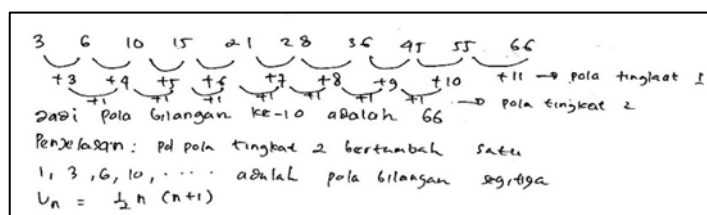 3 6 10 15 21 28 36 45 55 66
+3 +4 +5 +6 +7 +8 +9 +10 +11 → pola tingkat 1
+1 +1 +1 +1 +1 +1 +1 → pola tingkat 2
Jadi pola bilangan ke-10 adalah 66
Penjelasan : pd pola tingkat 2 bertambah satu
1, 3, 6, 10, .... adalah pola bilangan segitiga
Un = ½ n (n+1)